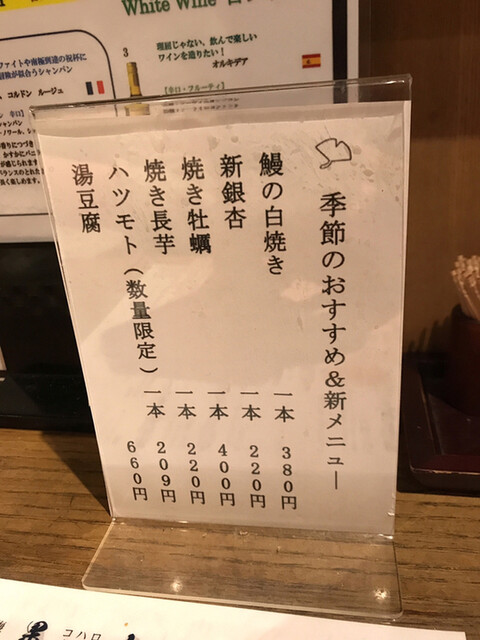 White Wine
3
理屈じゃない、飲んで楽しい
ワインを造りたい!
オルキデア
【辛口・フルーティ】
コルドン ルージュ
季節のおすすめ&新メニュー
鰻の白焼き 一本 380円
新銀杏 一本 220円
焼き牡蠣 一本 400円
焼き長芋 一本 220円
ハツモト(数量限定) 一本 209円
湯豆腐 660円
コハロ